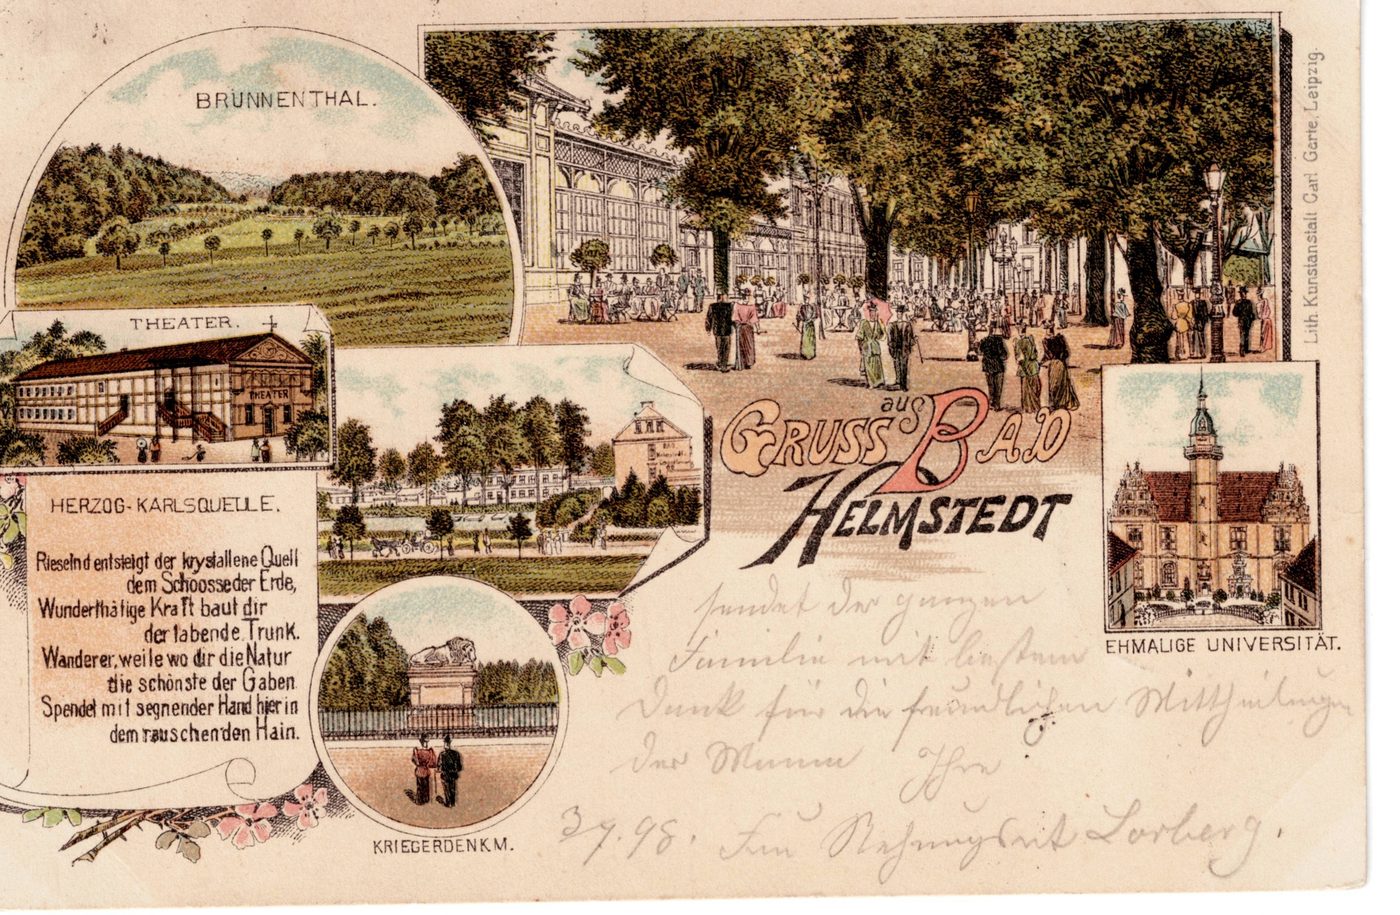 BRUNNENTHAL.
THEATER.
THEATER
HERZOG-KARLSQUELLE.
Rieselnd entsteigt der krystallene Quell
dem Schoosse der Erde,
Wunderthätige Kraft baut dir
der labende Trunk.
Wanderer, weile wo dir die Natur
die schönste der Gaben
Spendet mit segnender Hand hier in
dem rauschenden Hain.
KRIEGERDENKM.
GRUSS aus BAD
HELMSTEDT
EHMALIGE UNIVERSITÄT.
Lith Kunstanstalt Carl Garte, Leipzig.
sendet der ganzen
Familie mit bestem
Dank für die freundlichen Mittheilungen
der Mama Ihre
Frau Lorberg.